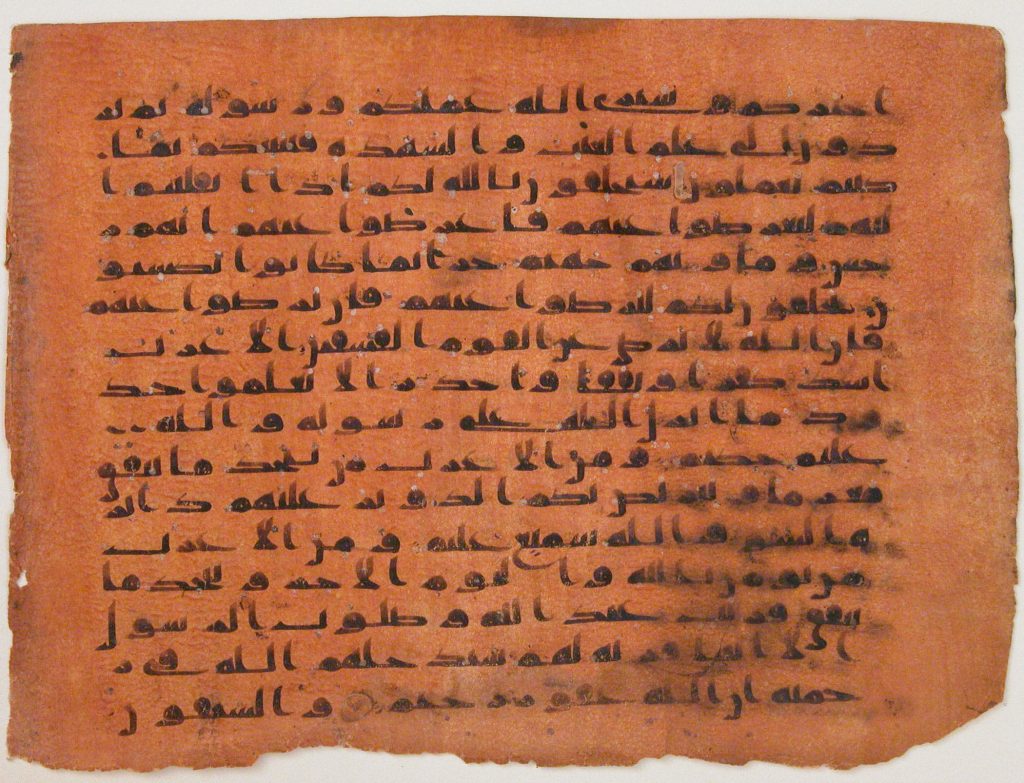 اخباركم وسيرى الله عملكم ورسوله ثم تر
دون الى علم الغيب والشهدة فينبئكم بما
كنتم تعملون سيحلفون بالله لكم اذا انقلبتم ا
ليهم لتعرضوا عنهم فاعرضوا عنهم انهم ر
جس وماويهم جهنم جزا بما كانوا يكسبو
ن يحلفون لكم لترضوا عنهم فان ترضوا عنهم
فان الله لا يرضى عن القوم الفسقين الاعراب
اشد كفرا ونفقا واجدر الا يعلموا حد
ود ما انزل الله على رسوله والله
عليم حكيم ومن الاعراب من يتخذ ما ينفق
مغرما ويتربص بكم الدوير عليهم داير
ة السو والله سميع عليم ومن الاعراب
من يومن بالله واليوم الاخر ويتخذ ما
ينفق قربت عند الله وصلوت الرسول
الا انها قربة لهم سيدخلهم الله في ر
حمته ان الله غفور رحيم والسبقون